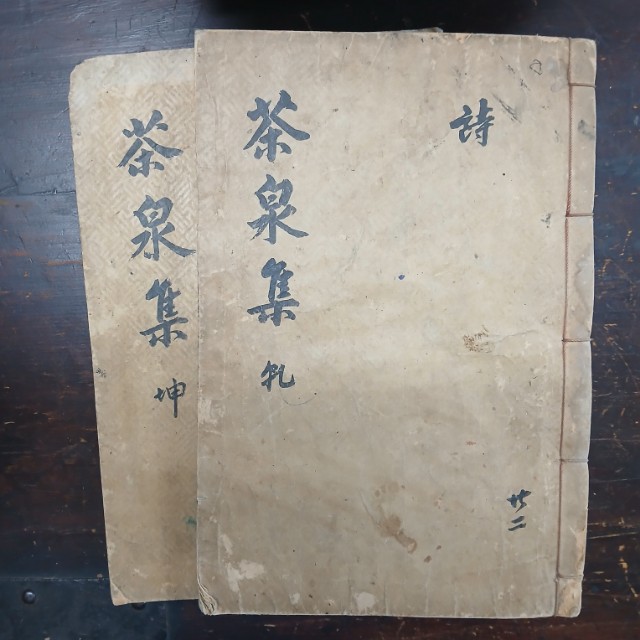 詩
共二
茶泉集 乹
茶泉集 坤